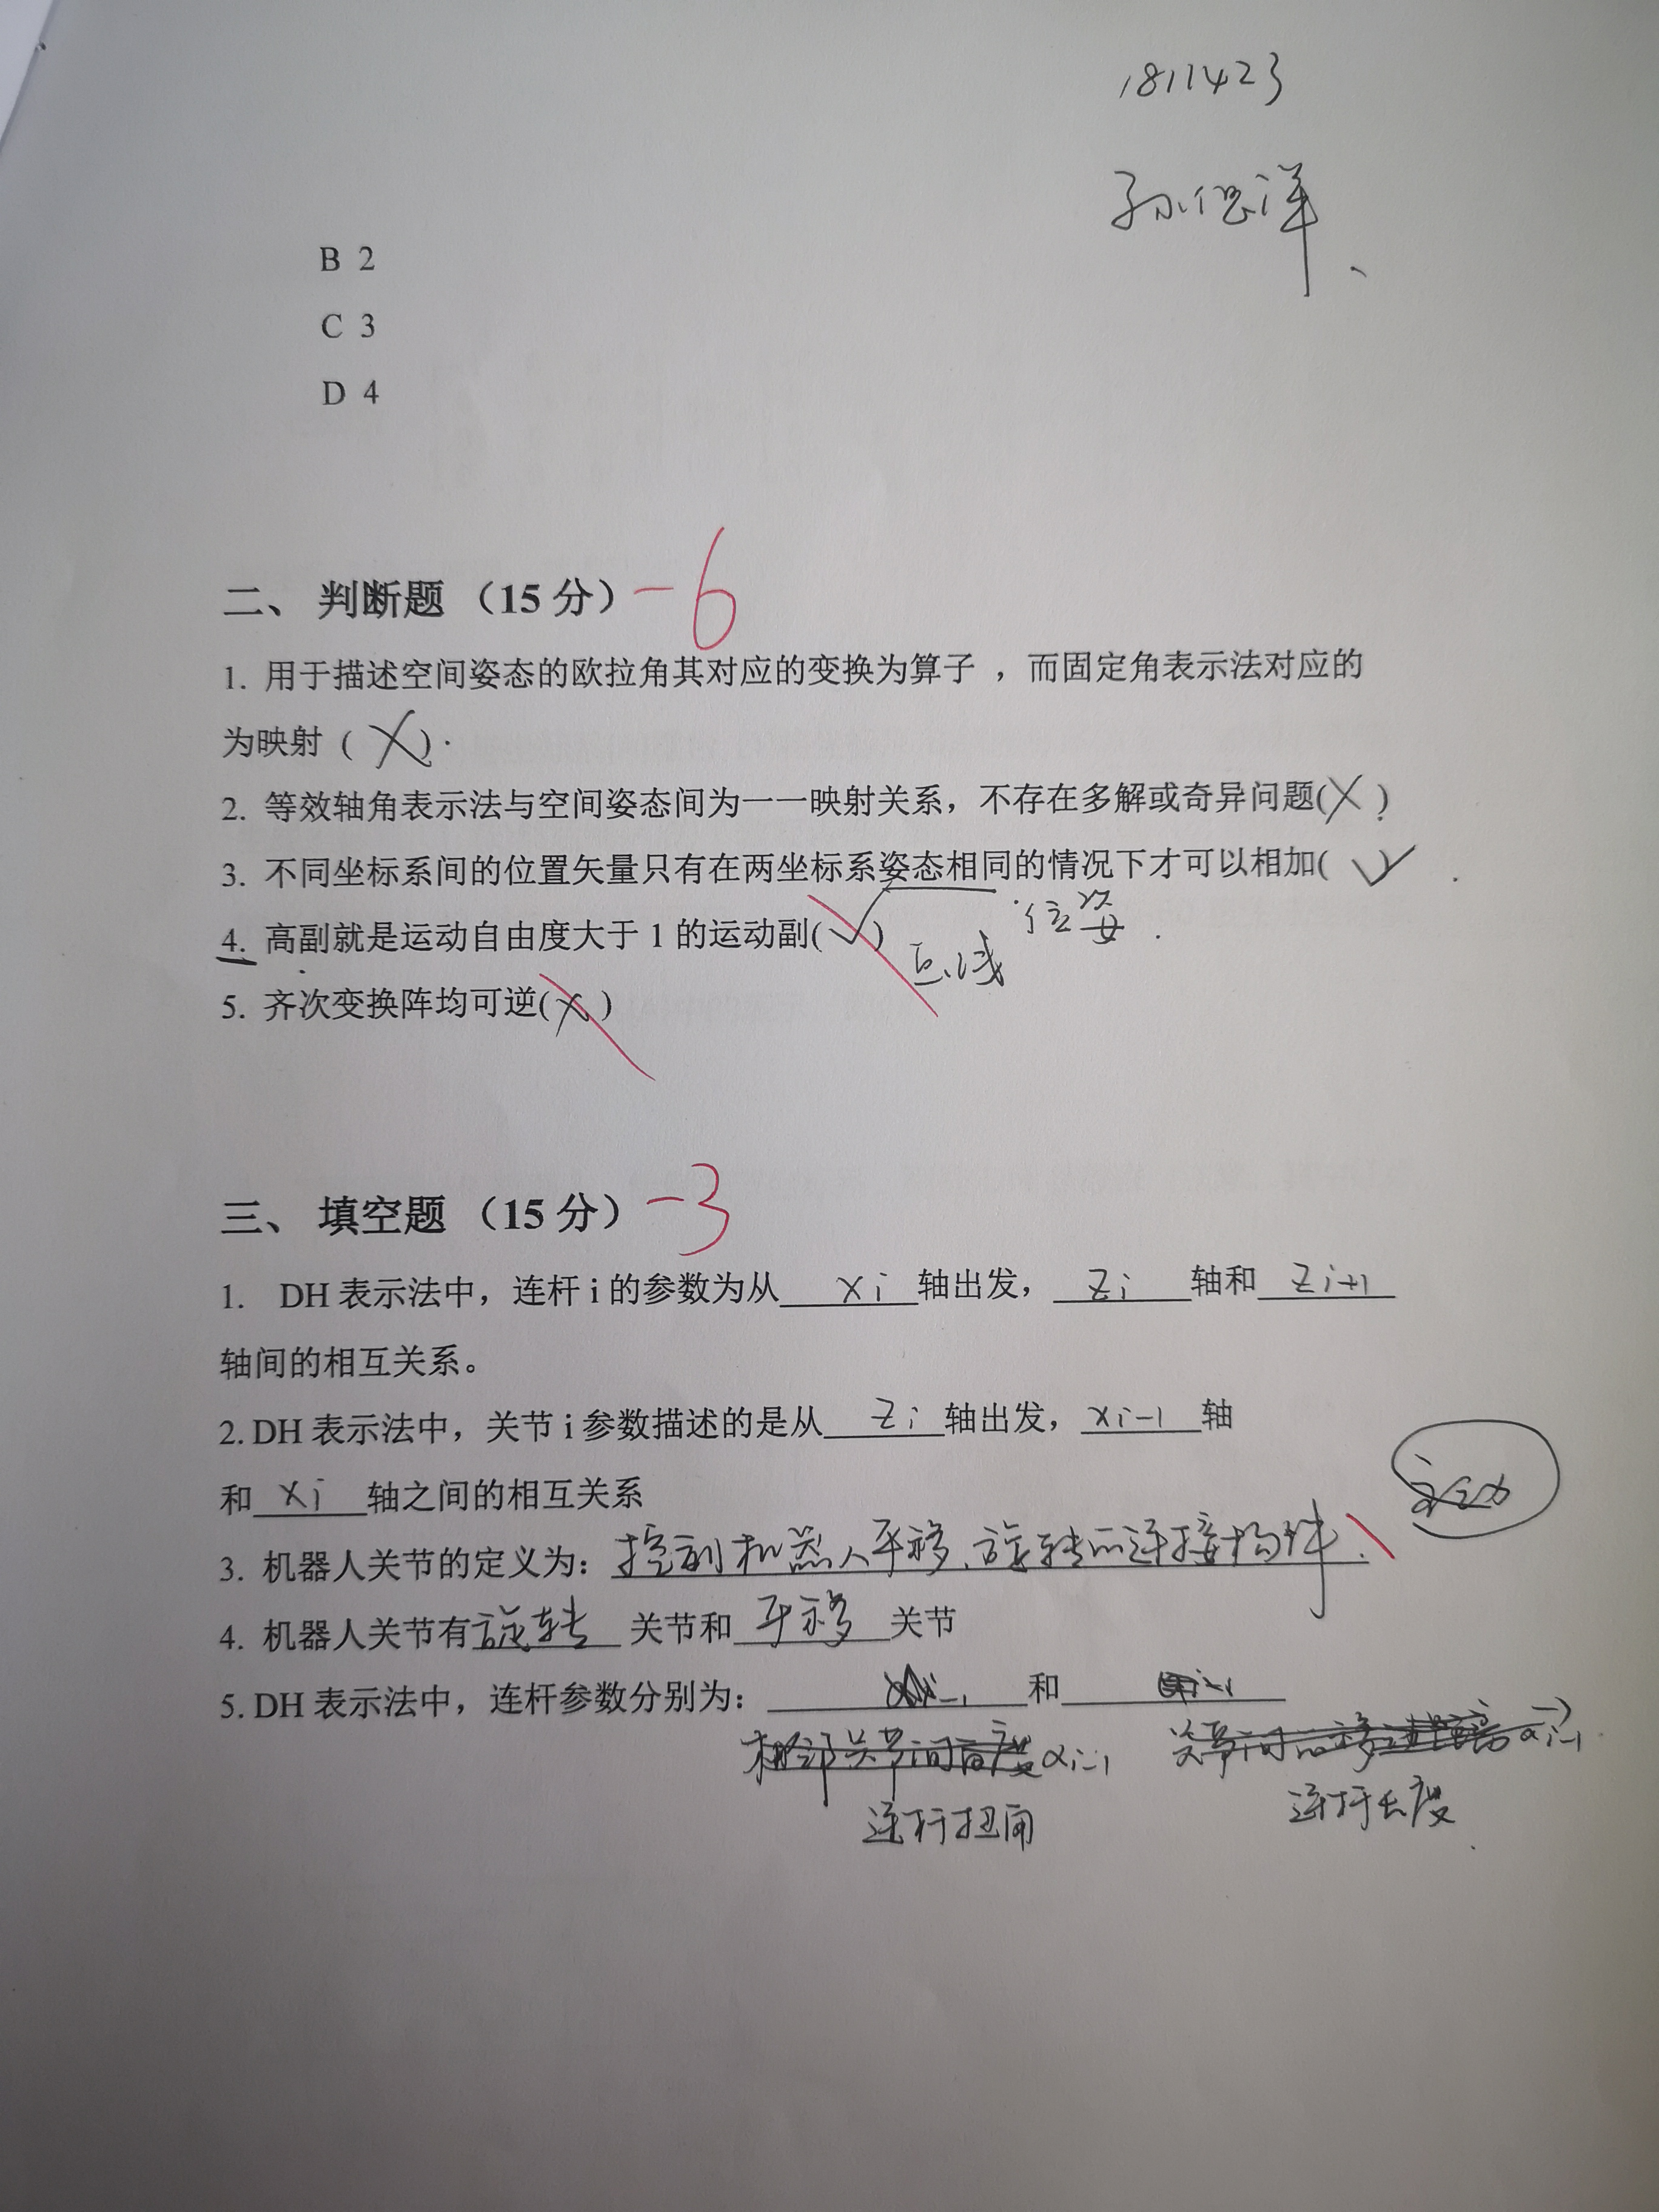 1811423
孙
B 2
C 3
D 4
二、 判断题 （15 分） -6
1. 用于描述空间姿态的欧拉角其对应的变换为算子 ，而固定角表示法对应的
为映射 ( X ) .
2. 等效轴角表示法与空间姿态间为一一映射关系，不存在多解或奇异问题( X )
3. 不同坐标系间的位置矢量只有在两坐标系姿态相同的情况下才可以相加( √ )
位姿
4. 高副就是运动自由度大于 1 的运动副( √ )
5. 齐次变换阵均可逆( X )
三、 填空题 （15 分） -3
1. DH 表示法中，连杆 i 的参数为从 xi 轴出发， zi 轴和 zi+1
轴间的相互关系。
2. DH 表示法中，关节 i 参数描述的是从 zi 轴出发， xi-1 轴
和 xi 轴之间的相互关系
3. 机器人关节的定义为： 控制机器人平移、旋转的连接构件.
4. 机器人关节有 旋转 关节和 平移 关节
5. DH 表示法中，连杆参数分别为： 和
αi-1
连杆扭角 连杆长度